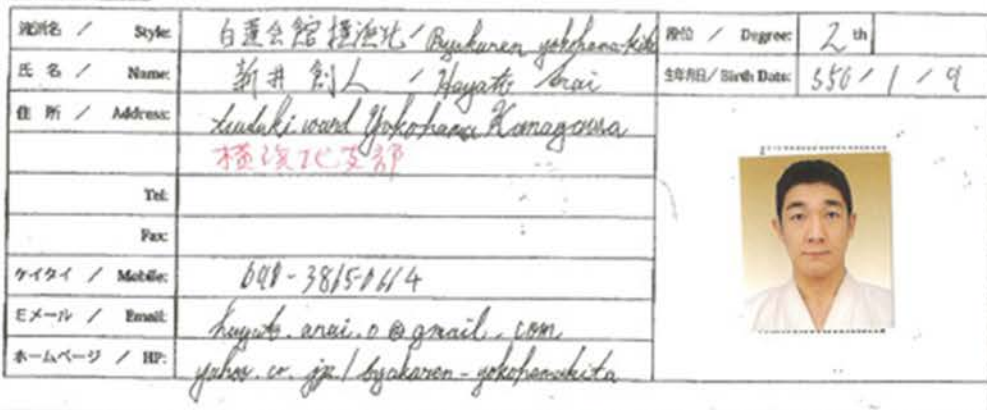 流派名 / Style: 白蓮会館 横浜北 / Byakuren yokohama-kita 段位 / Degree: 2 th
氏 名 / Name: 新井 創人 / Hayato Arai 生年月日 / Birth Date: S50 / 1 / 9
住 所 / Address: tsuduki ward Yokohama Kanagawa
横浜北支部
Tel:
Fax:
ケイタイ / Mobile:
Eメール / Email: hayato.arai.0@gmail.com
ホームページ / HP: yahoo.co.jp/byakuren-yokohamakita